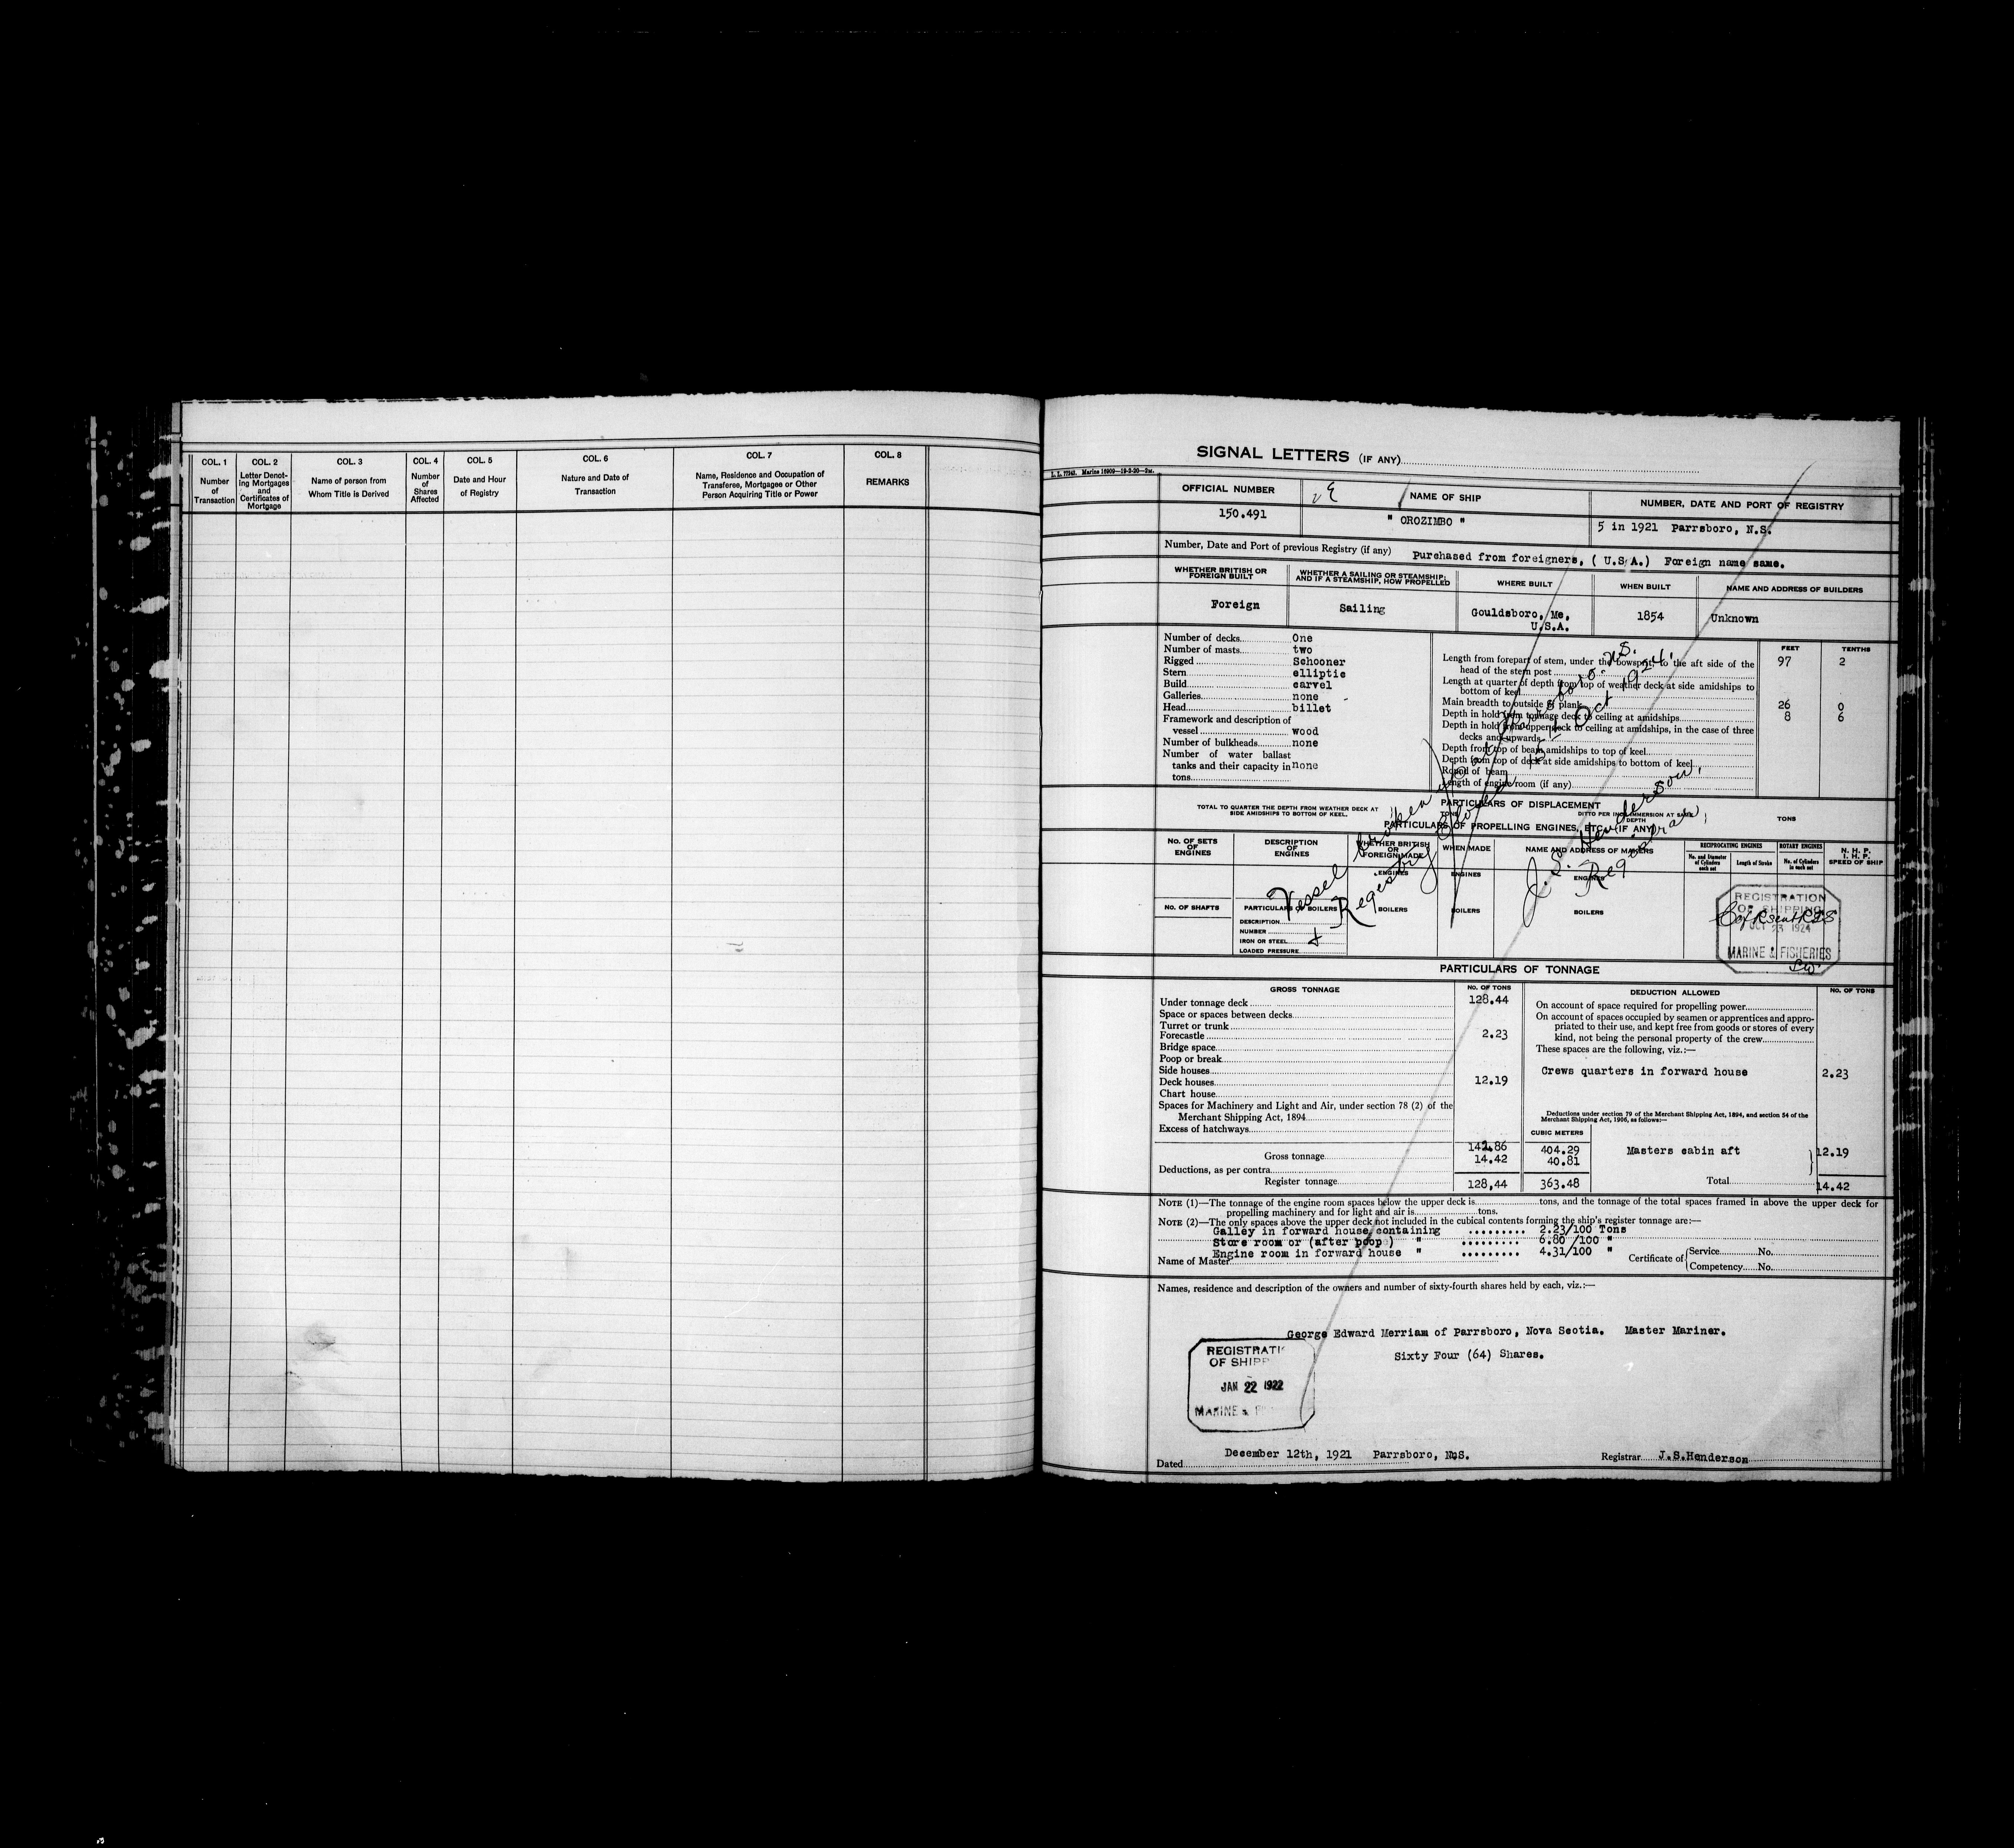 COL. 1
Number
of
Transaction
COL. 2
Letter Denot-
ing Mortgages
and
Certificates of
Mortgage
COL. 3
Name of person from
Whom Title is Derived
COL. 4
Number
of
Shares
Affected
COL. 5
Date and Hour
of Registry
COL. 6
Nature and Date of
Transaction
COL. 7
Name, Residence and Occupation of
Transferee, Mortgagee or Other
Person Acquiring Title or Power
COL. 8
REMARKS
SIGNAL LETTERS (IF ANY)
OFFICIAL NUMBER
150.491
NAME OF SHIP
" OROZIMBO "
NUMBER, DATE AND PORT OF REGISTRY
5 in 1921 Parrsboro, N.S.
Number, Date and Port of previous Registry (if any) Purchased from foreigners, ( U.S.A.) Foreign name same.
WHETHER BRITISH OR
FOREIGN BUILT
Foreign
WHETHER A SAILING OR STEAMSHIP;
AND IF A STEAMSHIP, HOW PROPELLED
Sailing
WHERE BUILT
Gouldsboro, Me,
U.S.A.
WHEN BUILT
1854
NAME AND ADDRESS OF BUILDERS
Unknown
Number of decks One
Number of masts two
Rigged Schooner
Stern elliptic
Build carvel
Galleries none
Head billet
Framework and description of
vessel wood
Number of bulkheads none
Number of water ballast
tanks and their capacity in none
tons
FEET TENTHS
Length from forepart of stem, under the bowsprit, to the aft side of the
head of the stern post 97 2
Length at quarter of depth from top of weather deck at side amidships to
bottom of keel
Main breadth to outside of plank 26 0
Depth in hold from tonnage deck to ceiling at amidships 8 6
Depth in hold from upper deck to ceiling at amidships, in the case of three
decks and upwards
Depth from top of beam amidships to top of keel
Depth from top of deck at side amidships to bottom of keel
Round of beam
Length of engine room (if any)
Vessel broken up at Parrsboro. N.S.
& Registry Closed 1st Oct 1924.
J. S. Henderson,
Registrar
PARTICULARS OF DISPLACEMENT
TOTAL TO QUARTER THE DEPTH FROM WEATHER DECK AT
SIDE AMIDSHIPS TO BOTTOM OF KEEL.
TONS
DITTO PER INCH IMMERSION AT SAME
DEPTH
TONS
PARTICULARS OF PROPELLING ENGINES, ETC. (IF ANY)
NO. OF SETS
OF
ENGINES
DESCRIPTION
OF
ENGINES
WHETHER BRITISH
OR
FOREIGN MADE
WHEN MADE
NAME AND ADDRESS OF MAKERS
RECIPROCATING ENGINES
No. and Diameter
of Cylinders
each set
Length of Stroke
ROTARY ENGINES
No. of Cylinders
in each set
N. H. P.
I. H. P.
SPEED OF SHIP
ENGINES
ENGINES
ENGINES
NO. OF SHAFTS
PARTICULARS OF BOILERS
DESCRIPTION
NUMBER
IRON OR STEEL
LOADED PRESSURE
BOILERS
BOILERS
BOILERS
REGISTRATION
OF SHIPPING
OCT 23 1924
MARINE & FISHERIES
PARTICULARS OF TONNAGE
GROSS TONNAGE
NO. OF TONS
Under tonnage deck 128.44
Space or spaces between decks
Turret or trunk
Forecastle 2.23
Bridge space
Poop or break
Side houses
Deck houses 12.19
Chart house
Spaces for Machinery and Light and Air, under section 78 (2) of the
Merchant Shipping Act, 1894
Excess of hatchways
CUBIC METERS
Gross tonnage 142.86 404.29
Deductions, as per contra 14.42 40.81
Register tonnage 128,44 363.48
DEDUCTION ALLOWED
NO. OF TONS
On account of space required for propelling power
On account of spaces occupied by seamen or apprentices and appro-
priated to their use, and kept free from goods or stores of every
kind, not being the personal property of the crew
These spaces are the following, viz.:—
Crews quarters in forward house 2.23
Deductions under section 79 of the Merchant Shipping Act, 1894, and section 54 of the
Merchant Shipping Act, 1906, as follows:—
Masters cabin aft 12.19
Total 14.42
NOTE (1)—The tonnage of the engine room spaces below the upper deck is tons, and the tonnage of the total spaces framed in above the upper deck for
propelling machinery and for light and air is tons.
NOTE (2)—The only spaces above the upper deck not included in the cubical contents forming the ship's register tonnage are:—
Galley in forward house containing ......... 2.23/100 Tons
Store room or (after poop ) " ......... 6.80 /100 "
Engine room in forward house " ......... 4.31/100 "
Name of Master
Certificate of Service No.
Competency No.
Names, residence and description of the owners and number of sixty-fourth shares held by each, viz.:—
George Edward Merriam of Parrsboro, Nova Scotia. Master Mariner.
Sixty Four (64) Shares.
REGISTRATI
OF SHIPP
JAN 22 1922
MARINE &
Dated December 12th, 1921 Parrsboro, N.S.
Registrar J.S.Henderson